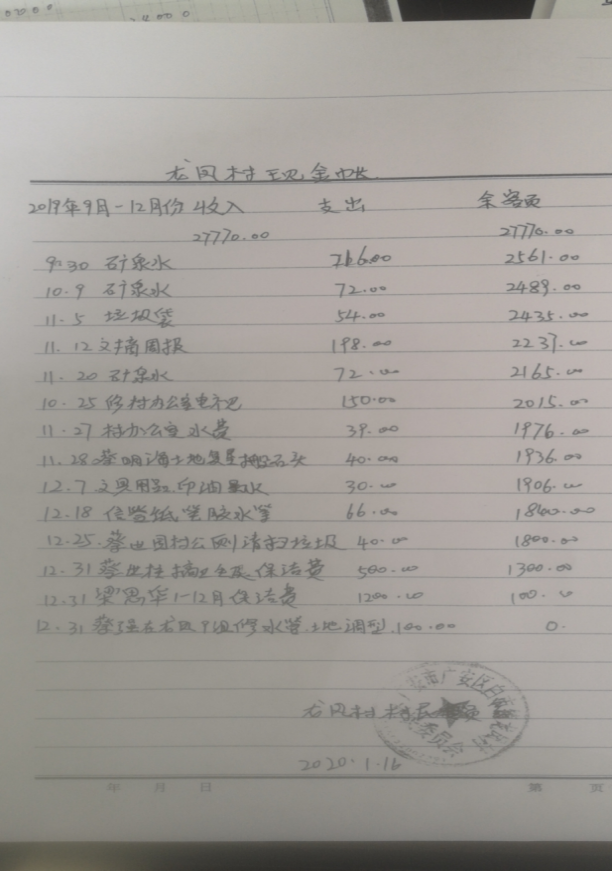 龙凤村现金帐
2019年9月-12月份 收入 支出 余额
27770.00 27770.00
9.30 矿泉水 216.00 2561.00
10.9 矿泉水 72.00 2489.00
11.5 垃圾袋 54.00 2435.00
11.12 文摘周报 198.00 2237.00
11.20 矿泉水 72.00 2165.00
10.25 修村办公室电 150.00 2015.00
11.27 村办公室水费 39.00 1976.00
11.28 蔡明海土地 石头 40.00 1936.00
12.7 文具用品印油墨水 30.00 1906.00
12.18 信笺纸笔胶水等 66.00 1840.00
12.25. 蔡 国村公 清扫垃圾 40.00 1800.00
12.31 蔡 保洁费 500.00 1300.00
12.31 梁思华1-12月保洁费 1200.00 100.00
12.31 蔡 修水管 土地调型 100.00 0.
龙凤村村民
广安区白
委员会
2020.1.16
年 月 日 第 页